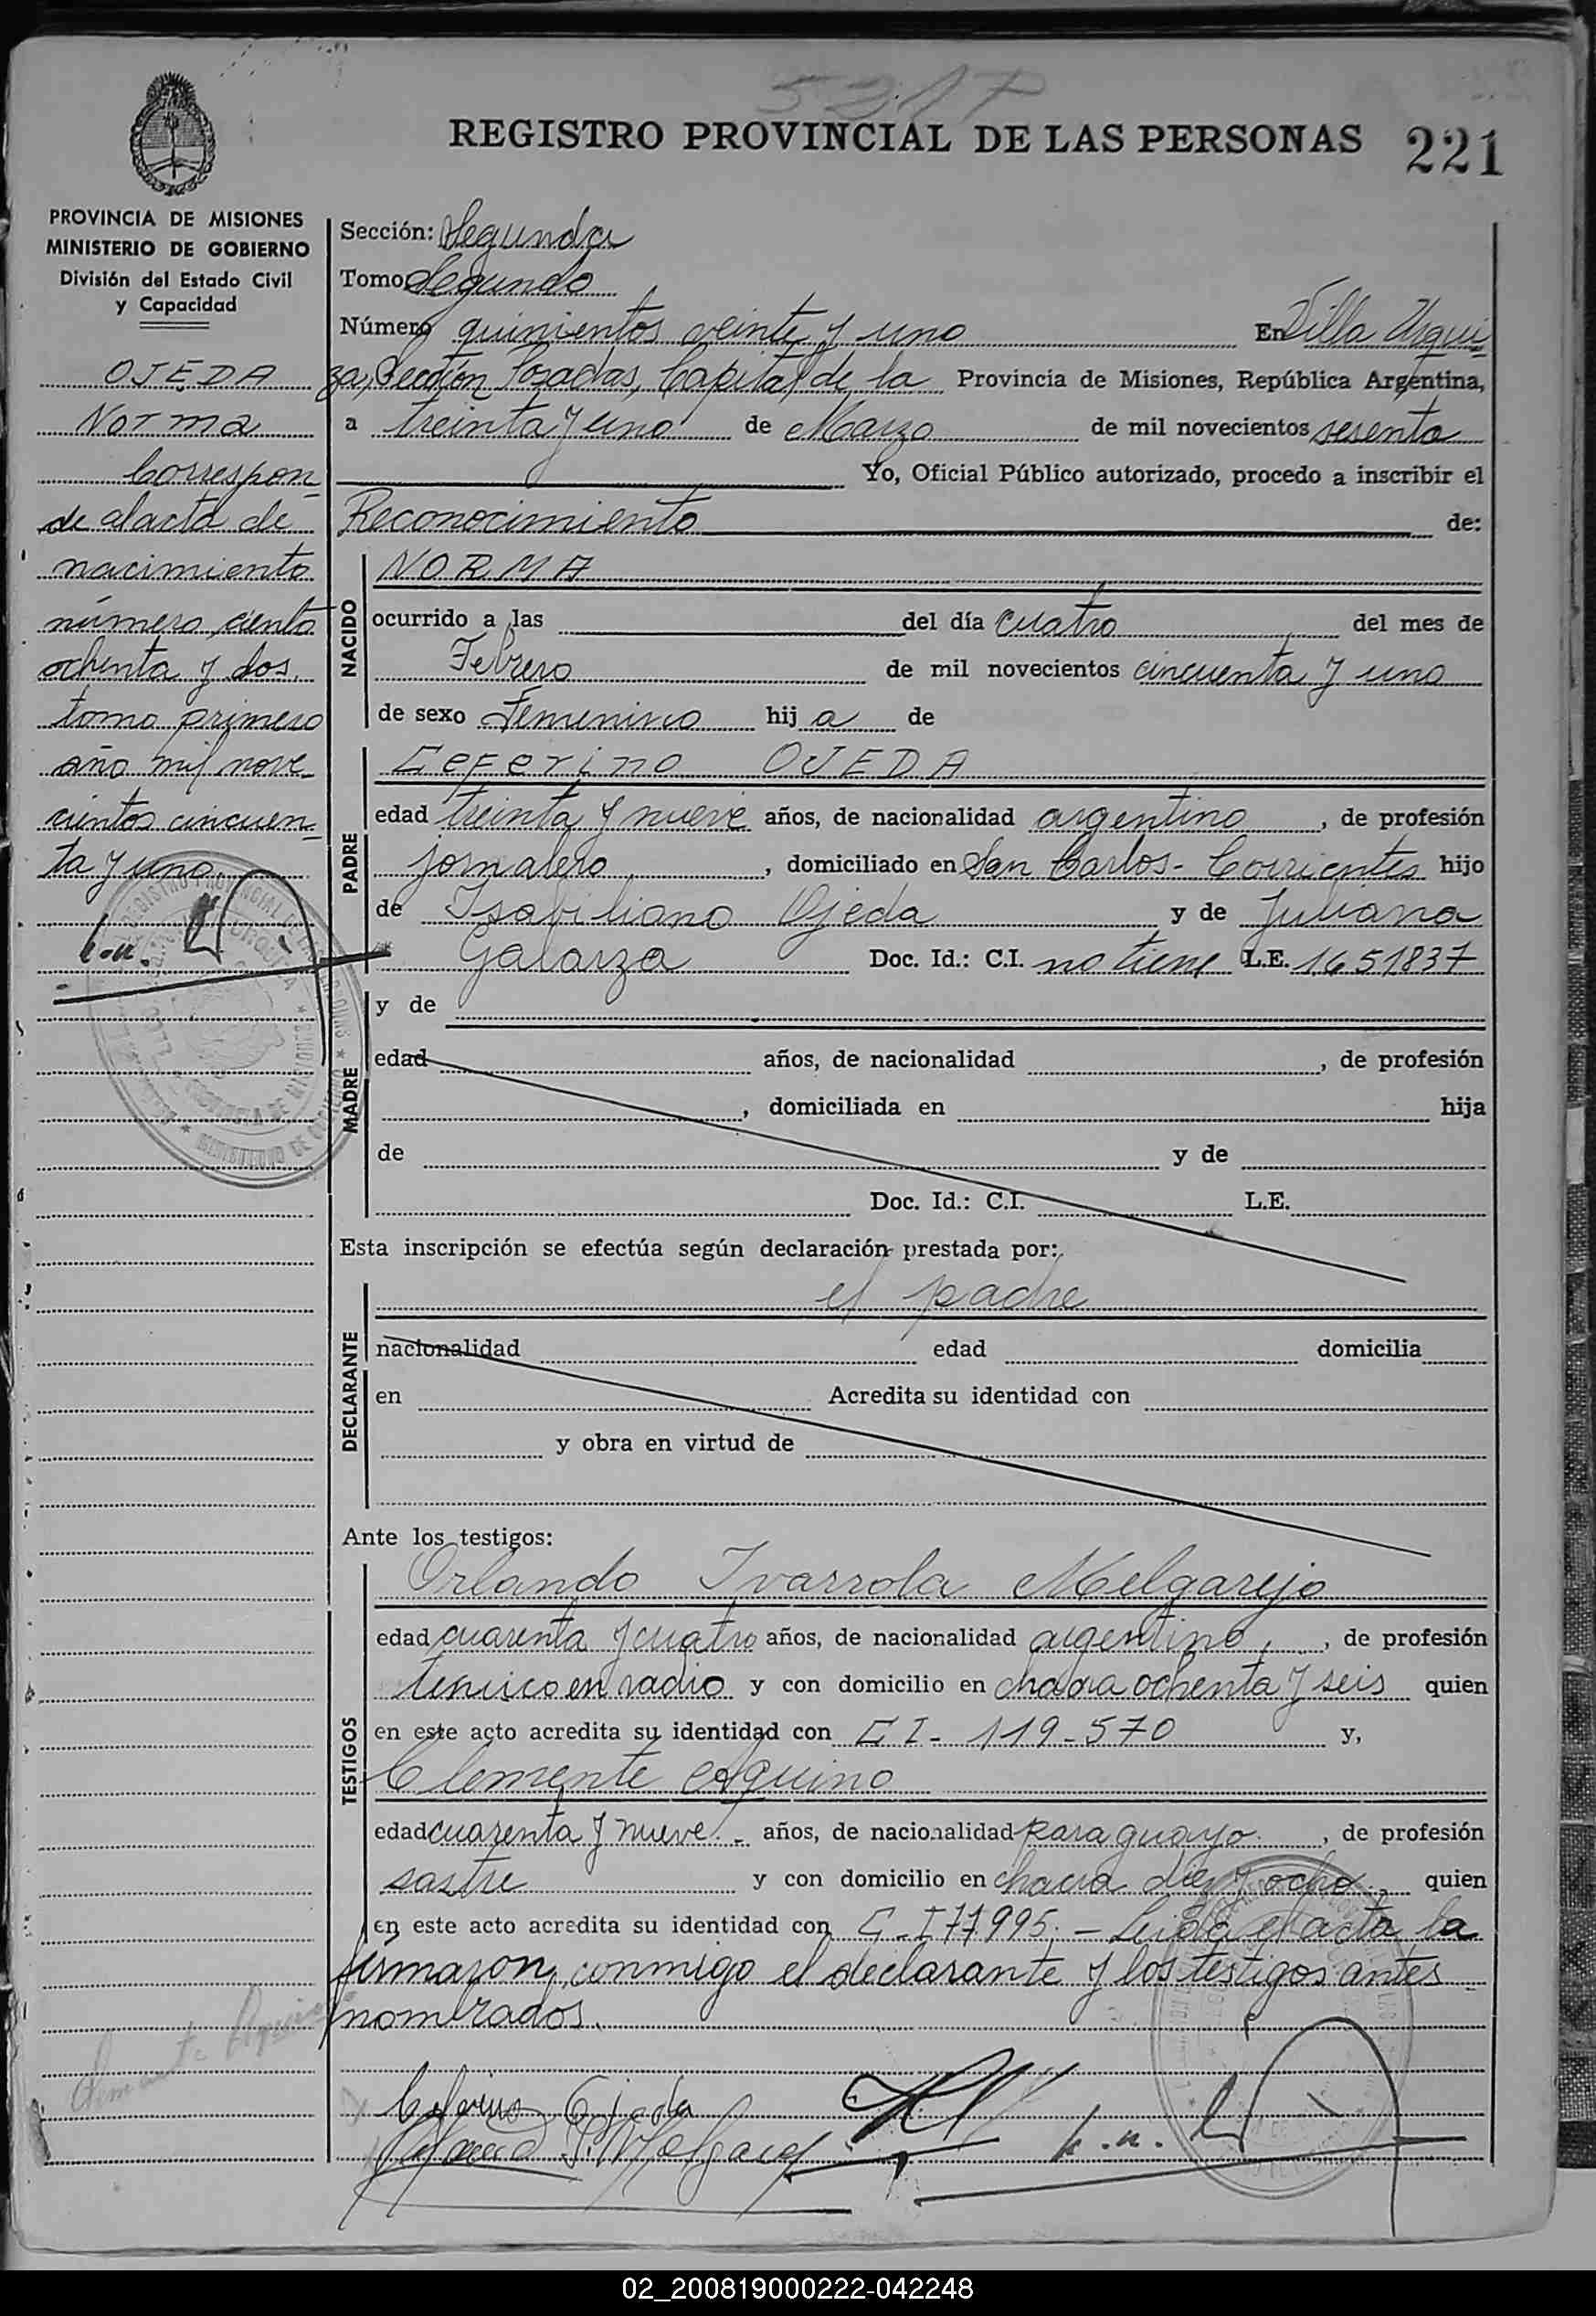 5217
REGISTRO PROVINCIAL DE LAS PERSONAS 221
PROVINCIA DE MISIONES
MINISTERIO DE GOBIERNO
División del Estado Civil
y Capacidad
OJEDA
Norma
Correspon-
de al acta de
nacimiento
número ciento
ochenta y dos,
tomo primero
año mil nove-
cientos cincuen-
ta y uno.
Sección: Segunda
Tomo Segundo
Número quinientos veinte y uno En Villa Urqui-
za, Sección Posadas, Capital de la Provincia de Misiones, República Argentina,
a treinta y uno de Marzo de mil novecientos sesenta
Yo, Oficial Público autorizado, procedo a inscribir el
Reconocimiento de:
NACIDO
NORMA
ocurrido a las del día cuatro del mes de
Febrero de mil novecientos cincuenta y uno
de sexo Femenino hij a de
PADRE
Ceferino OJEDA
edad treinta y nueve años, de nacionalidad argentino, de profesión
jornalero, domiciliado en San Carlos - Corrientes hijo
de Isabiliano Ojeda y de Juliana
Galarza Doc. Id.: C.I. no tiene L.E. 1651837
MADRE
y de
edad años, de nacionalidad , de profesión
, domiciliada en hija
de y de
Doc. Id.: C.I. L.E.
Esta inscripción se efectúa según declaración prestada por:
DECLARANTE
el padre
nacionalidad edad domicilia
en Acredita su identidad con
y obra en virtud de
Ante los testigos:
TESTIGOS
Orlando Ivarrola Melgarejo
edad cuarenta y cuatro años, de nacionalidad argentino, de profesión
tenico en radio y con domicilio en chacra ochenta y seis quien
en este acto acredita su identidad con C I - 119-570 y,
Clemente Aquino
edad cuarenta y nueve.- años, de nacionalidad paraguayo, de profesión
sastre y con domicilio en chacra diez y ocho, quien
en este acto acredita su identidad con C.I 77.995.- Leida el acta la
firmaron, conmigo el declarante y los testigos antes
nombrados.
Clemente Aquino
Ceferino Ojeda
02_200819000222-042248